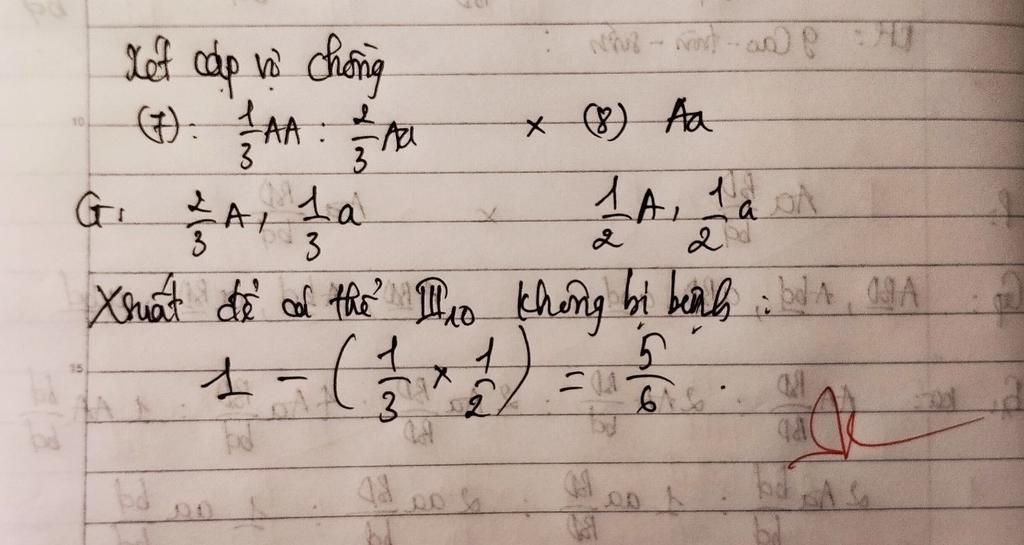 Xét cặp vợ chồng
(7): 1/3 AA : 2/3 Aa × (8) Aa
G: 2/3 A, 1/3 a 1/2 A, 1/2 a
Xsuất để cá thể III10 không bị bệnh :
1 - (1/3 × 1/2) = 5/6 .